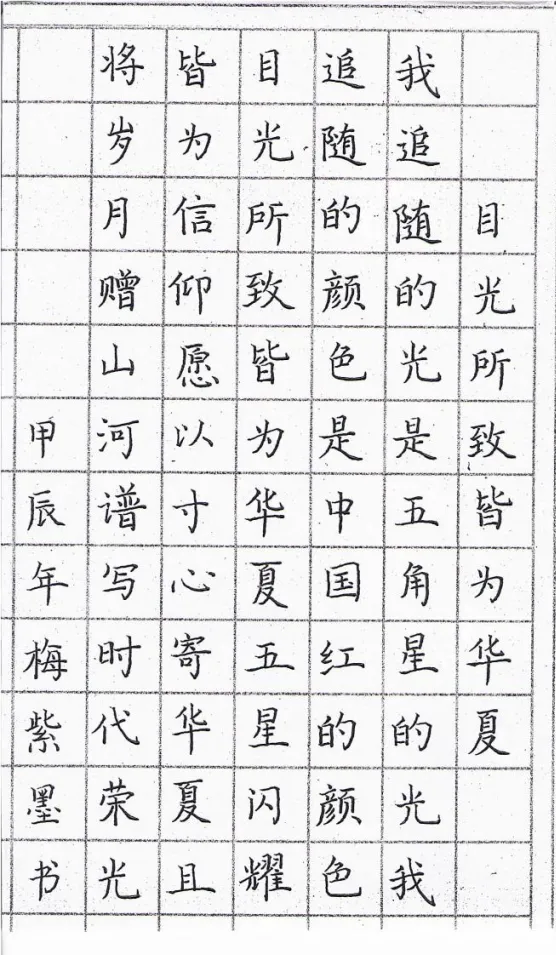 目光所致皆为华夏
我追随的光是五角星的光我
追随的颜色是中国红的颜色
目光所致皆为华夏五星闪耀
皆为信仰愿以寸心寄华夏且
将岁月赠山河谱写时代荣光
甲辰年梅紫墨书